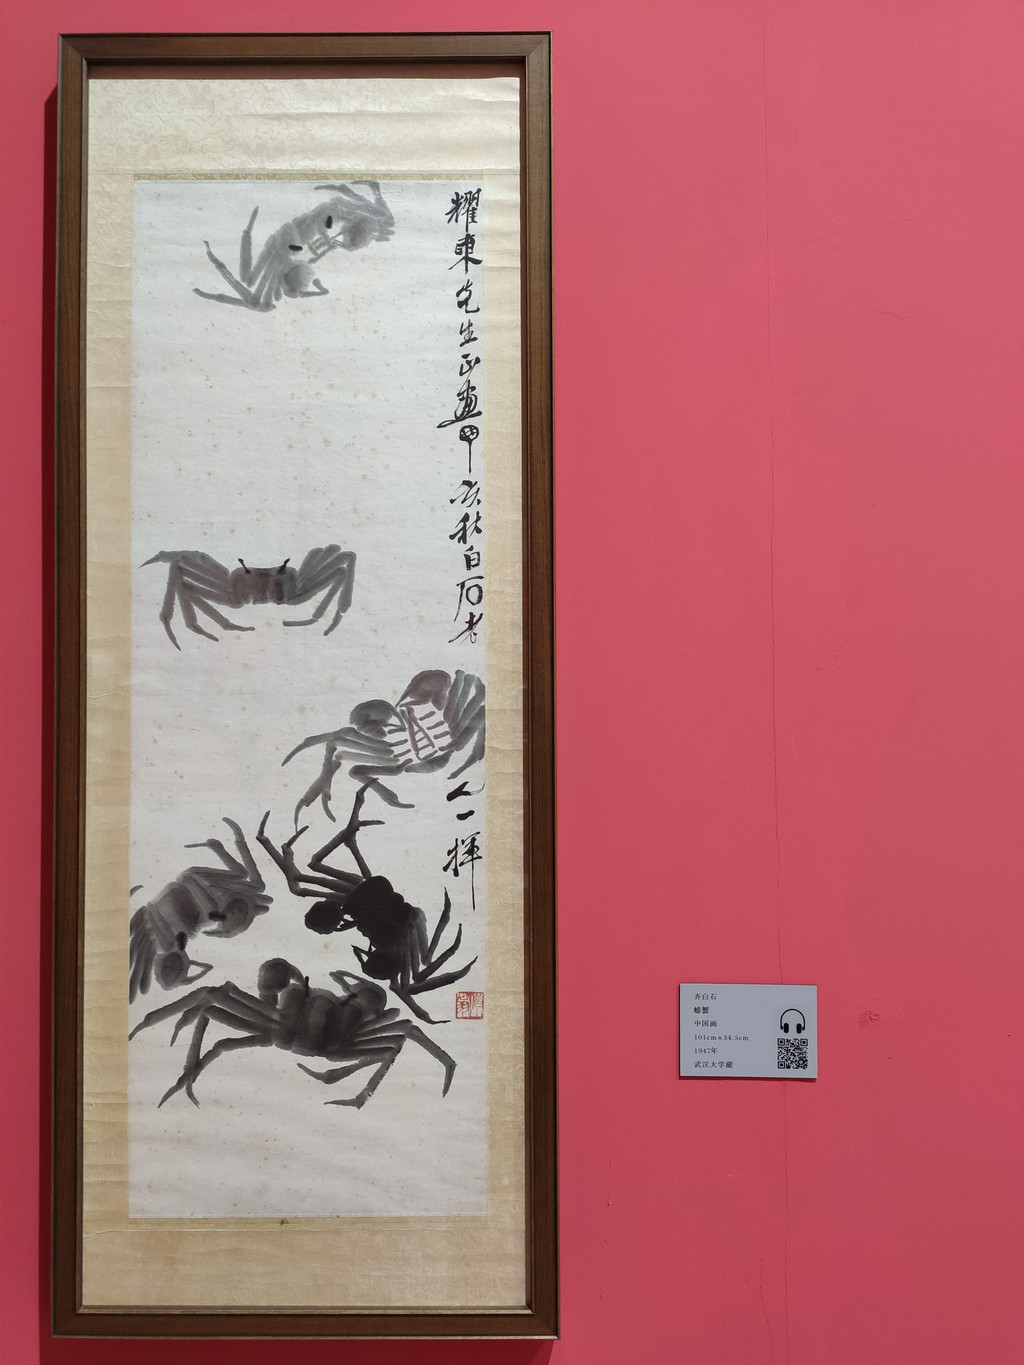 耀東先生正畫丁亥秋白石老人一揮
齐白石
螃蟹
中国画
101cm×34.5cm
1947年
武汉大学藏